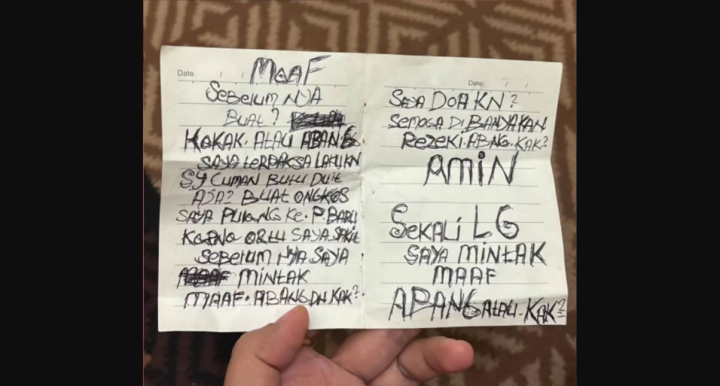 Date:
MAAF
SEBELUM NYA
BUAT?
KAKAK. ATAU ABANG
SAYA tERPAKSA LAKUKN
SY CUMAN BUtU DUit
AJA? BUAt ONGKOS
SAYA PULANG KE. P. BARU
KARNO ORtU SAYA SAKit
SEBELUM NYA SAYA
MINtAK
MAAF. ABANG DN KAK?
Date:
SAYA DOA KN?
SEMOGA DI BANYAKAN
REZEKI. ABNG. KAK?
AMiN
SEKALi LG
SAYA MiNtAK
MAAF
APANG AtAU. KAK?